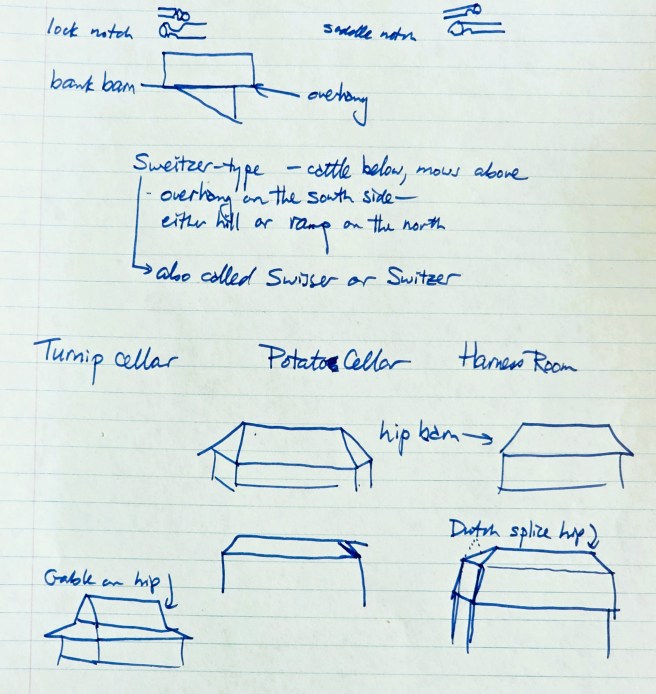 lock notch saddle notch
bank barn
overhang
Sweitzer-type – cattle below, mows above
- overhang on the south side –
either hill or ramp on the north
also called Swisser or Switzer
Turnip cellar Potatoe Cellar Harness Room
hip barn
Dutch splice hip
Gable on hip